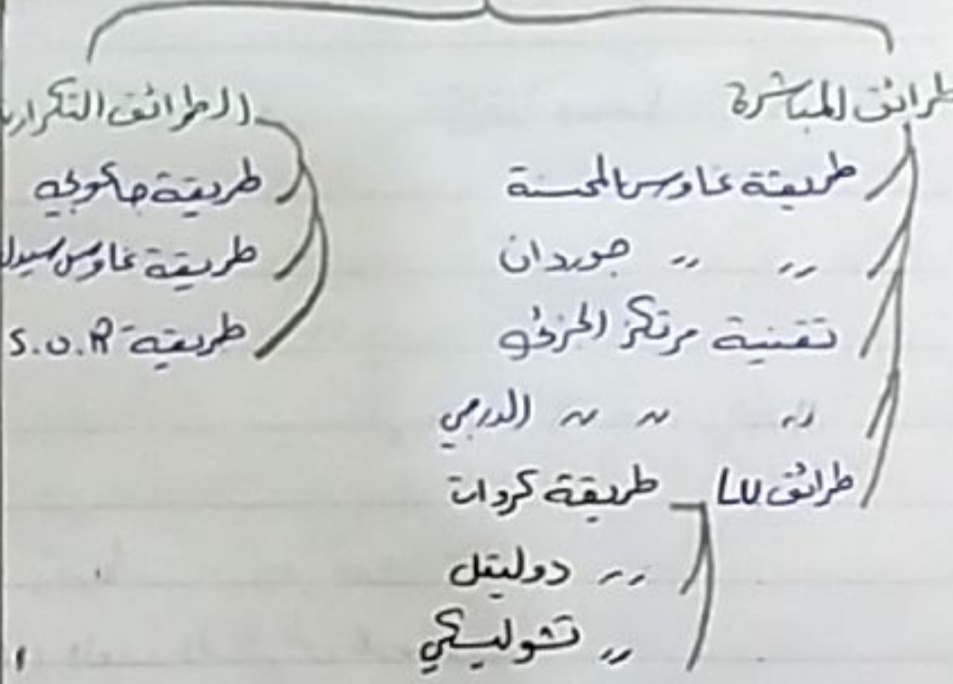 طرائق المباشرة
طريقة غاوس المحسنة
〃 〃 جوردان
تقنية مرتكز الجزئي
〃 〃 〃 الدرجي
طرائق LU
طريقة كروات
〃 دوليتل
〃 تشوليسكي
الطرائق التكرارية
طريقة جاكوبي
طريقة غاوس سيدل
طريقة S.O.R